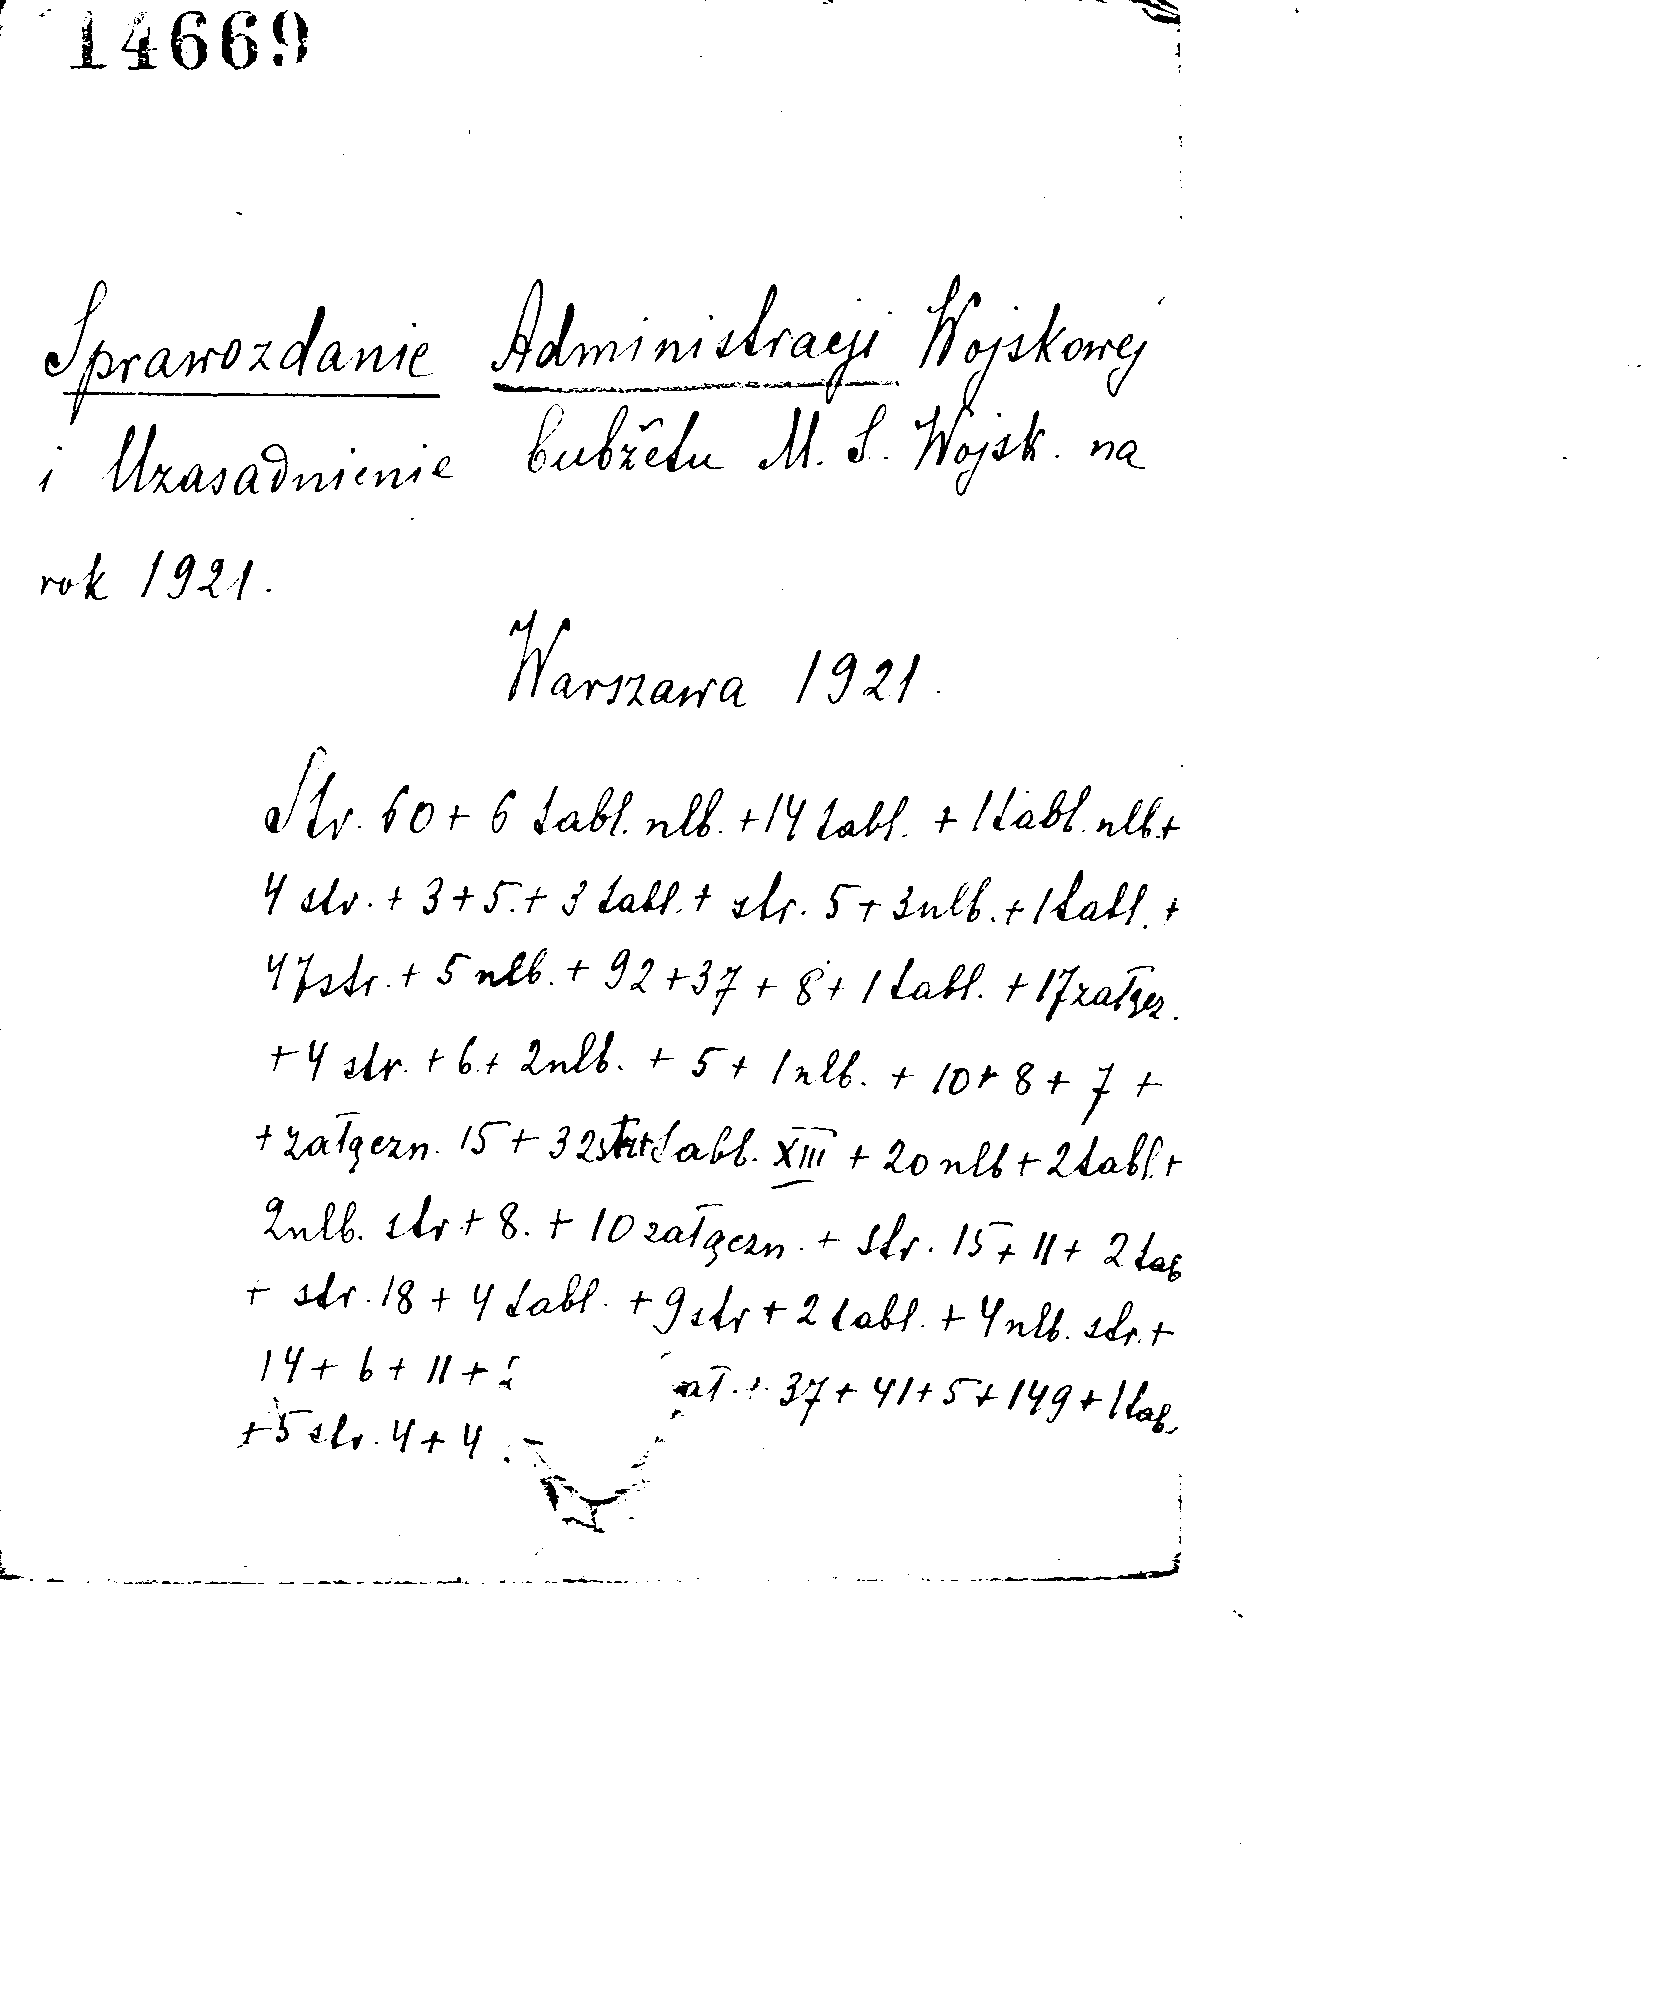 14669
Sprawozdanie Administracji Wojskowej
i Uzasadnienie budżetu M. S. Wojsk. na
rok 1921.
Warszawa 1921.
Str. 60 + 6 tabl. nlb. + 14 tabl. + 1 tabl. nlb. +
4 str. + 3 + 5. + 3 tabl. + str. 5 + 3 nlb. + 1 tabl. +
47 str. + 5 nlb. + 92 + 37 + 8 + 1 tabl. + 17 załącz.
+ 4 str. + 6 + 2 nlb. + 5 + 1 nlb. + 10 + 8 + 7 +
+ załączn. 15 + 32 str. + tabl. XIII + 20 nlb + 2 tabl. +
2 nlb. str + 8. + 10 załączn. + str. 15 + 11 + 2 tab
+ str. 18 + 4 tabl. + 9 str + 2 tabl. + 4 nlb. str. +
14 + 6 + 11 + ał. + 37 + 41 + 5 + 149 + 1 tab.
+ 5 str. 4 + 4